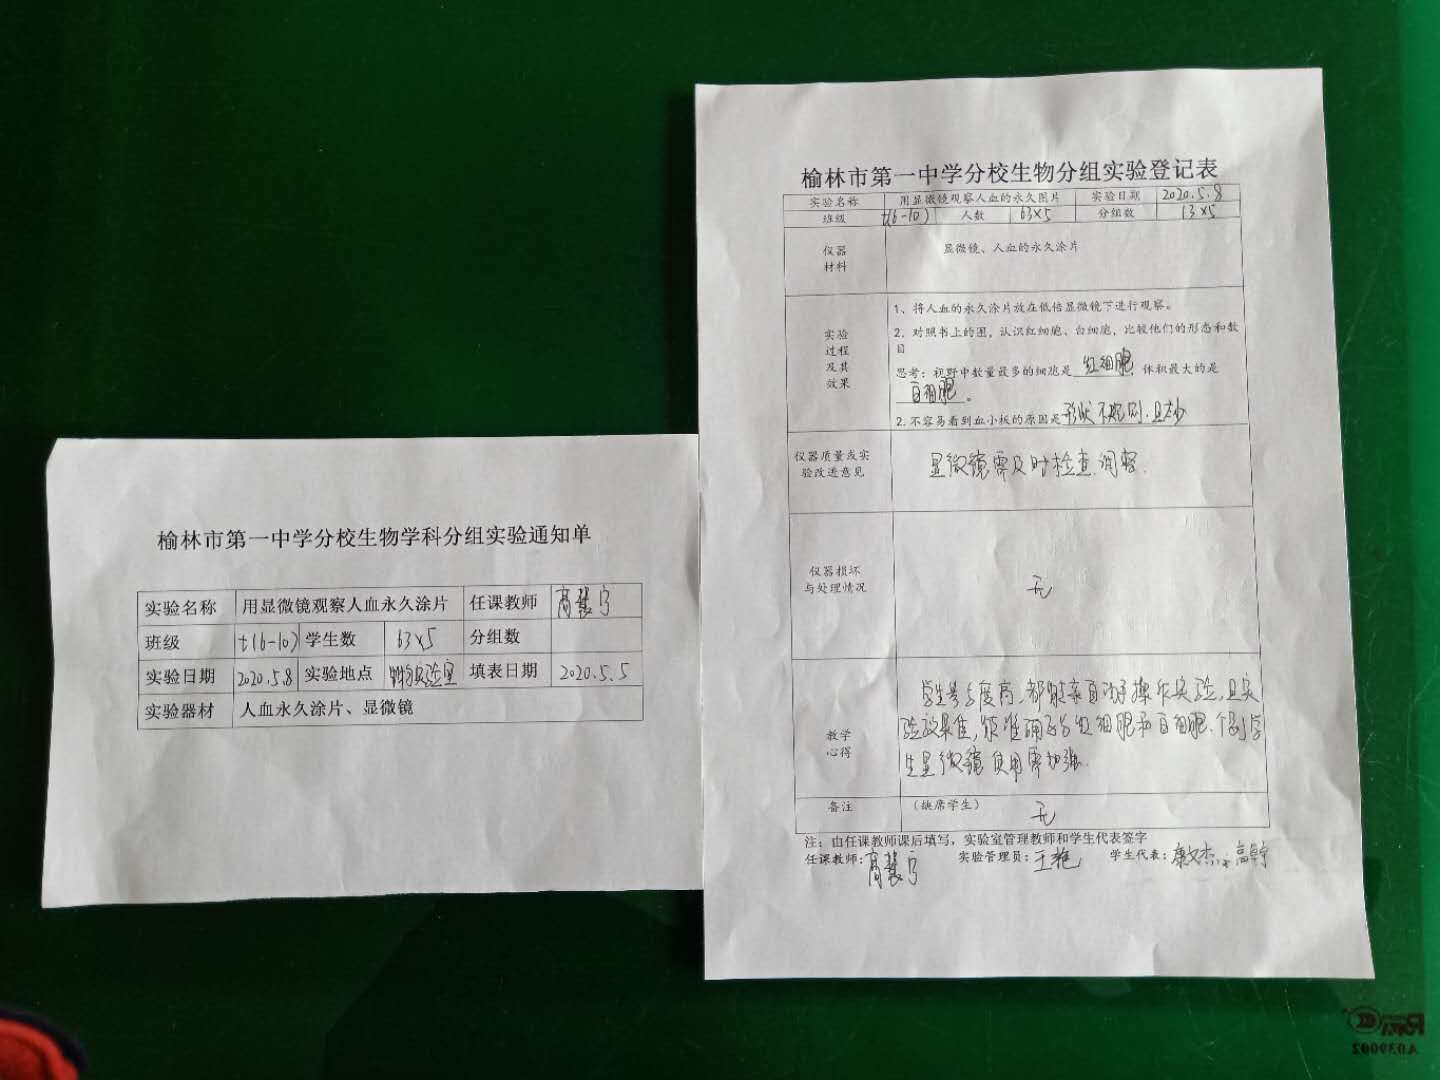 榆林市第一中学分校生物学科分组实验通知单
实验名称 用显微镜观察人血永久涂片 任课教师
班级 七(6-10) 学生数 63×5 分组数
实验日期 2020.5.8 实验地点 填表日期 2020.5.5
实验器材 人血永久涂片、显微镜
榆林市第一中学分校生物分组实验登记表
实验名称 用显微镜观察人血的永久图片 实验日期 2020.5.8
班级 七(6-10) 人数 63×5 分组数 13×5
仪器
材料
显微镜、人血的永久涂片
实验
过程
及其
效果
1、将人血的永久涂片放在低倍显微镜下进行观察。
2．对照书上的图，认识红细胞、白细胞，比较他们的形态和数
目
思考：视野中数量最多的细胞是 红细胞，体积最大的是
白细胞。
2.不容易看到血小板的原因是 形状不规则，且太少
仪器质量或实
验改进意见
显微镜需及时检查、调整.
仪器损坏
与处理情况
无
教学
心得
学生参与度高，都能亲自动手操作实验，且实
验效果佳，能准确区分红细胞和白细胞.个别学
生显微镜使用需加强.
备注 （缺席学生） 无
注：由任课教师课后填写，实验室管理教师和学生代表签字
任课教师： 实验管理员：王艳 学生代表：康文杰
A039002